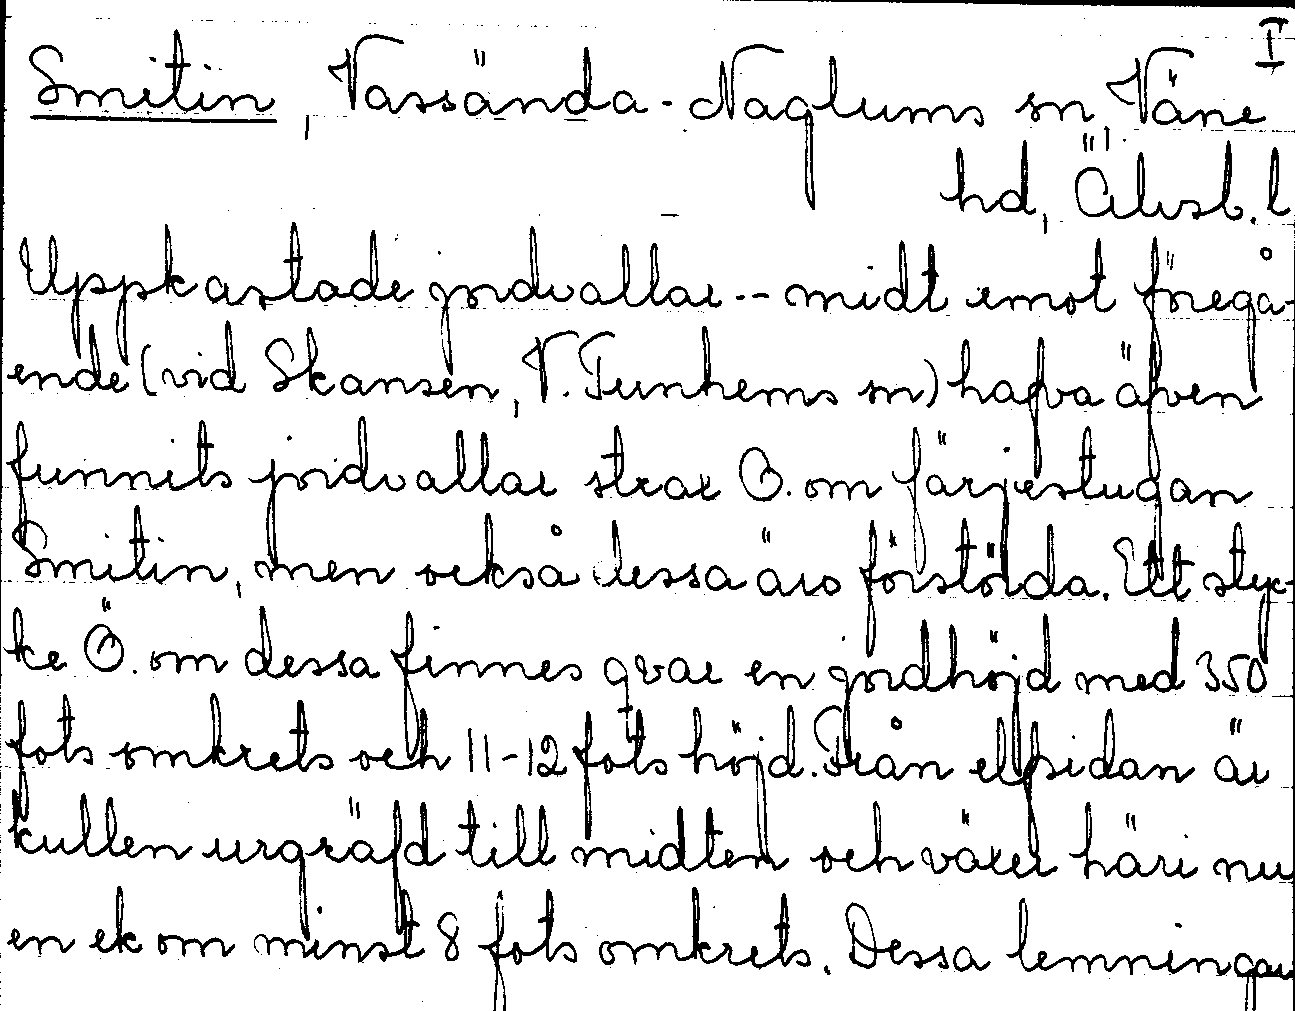 I
Smitin, Vassända-Naglums sn Väne
hd, Älvsb. l
Uppkastade jordvallar -- midt emot föregå-
ende (vid Skansen, V. Tunhems sn) hafva äfven
funnits jordvallar strax Ö. om färjestugan
Smitin, men också dessa äro förstörda. Ett styc-
ke Ö. om dessa finnes qvar en jordhöjd med 350
fots omkrets och 11-12 fots höjd. Från elfsidan är
kullen urgräfd till midten och växer häri nu
en ek om minst 8 fots omkrets. Dessa lemningar